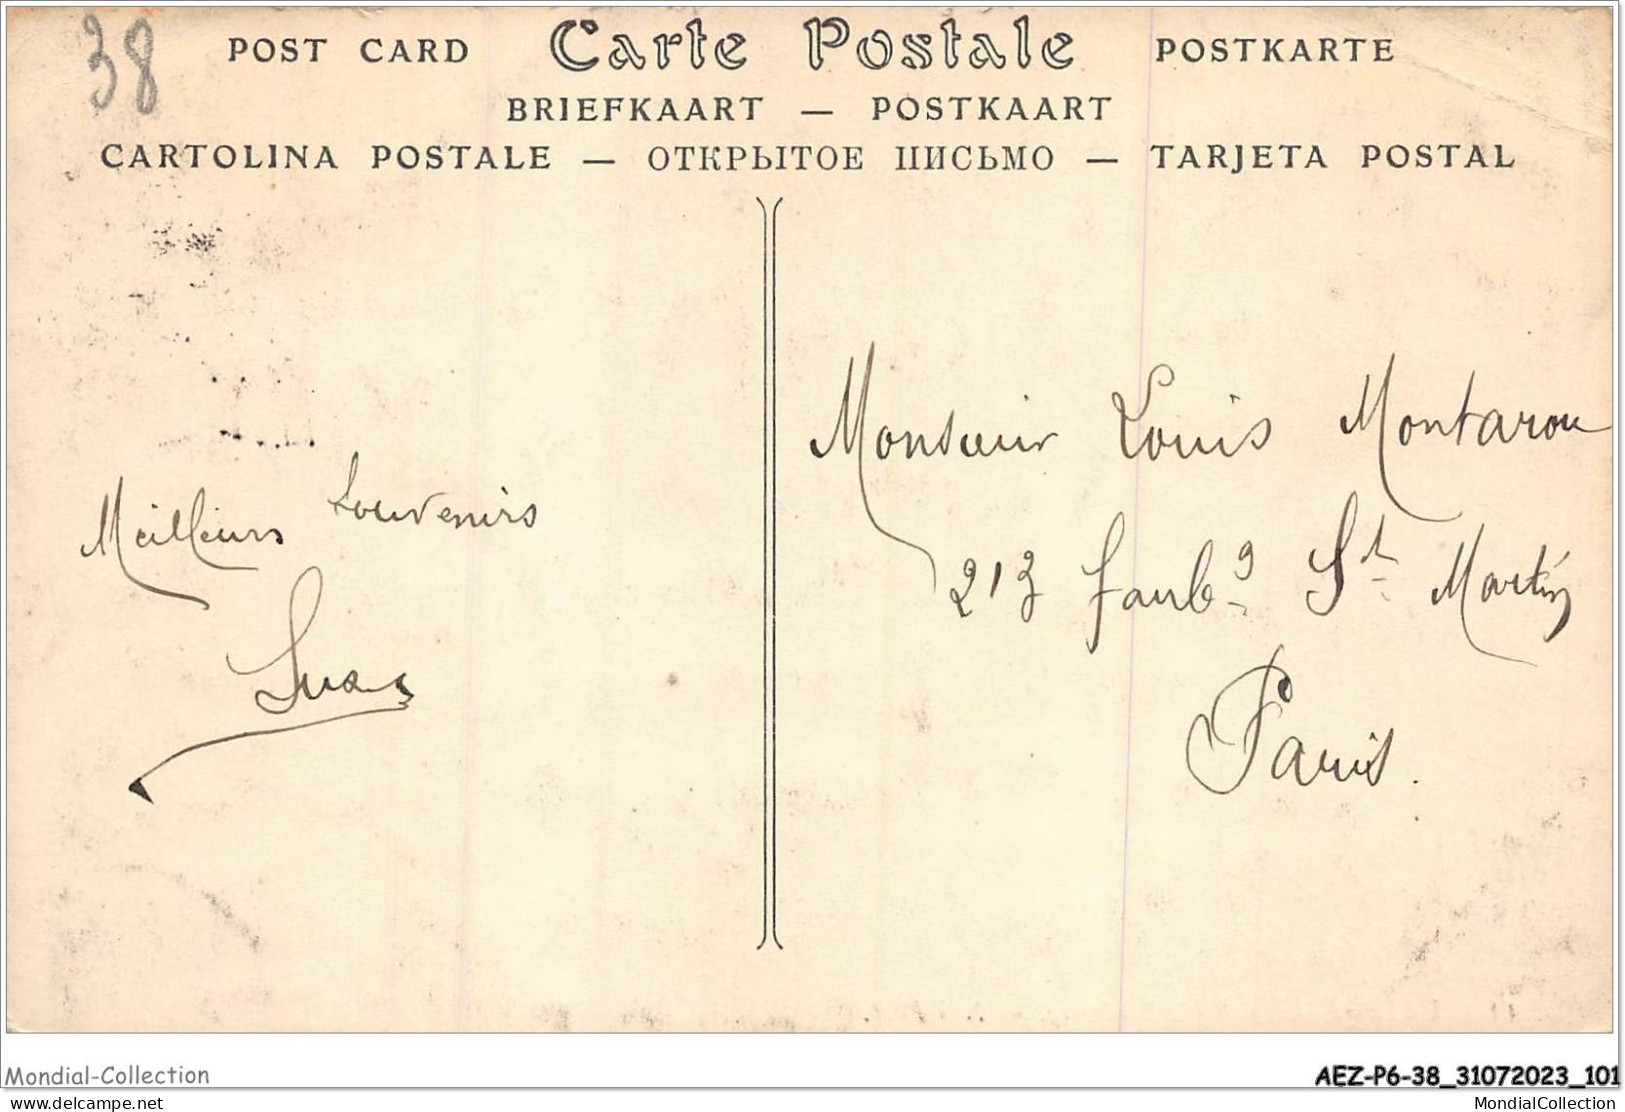 38
POST CARD Carte Postale POSTKARTE
BRIEFKAART — POSTKAART
CARTOLINA POSTALE — ОТКРЫТОЕ ПИСЬМО — TARJETA POSTAL
Meilleurs Souvenirs
Monsieur Louis Montarou
213 Faubg St Martin
Paris.
Mondial-Collection
AEZ-P6-38_31072023_101
www.delcampe.net
MondialCollection